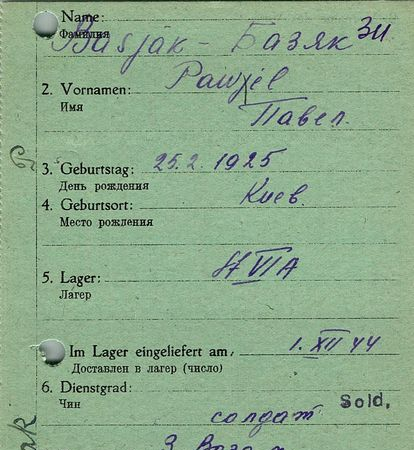 Name:
Basjak - Базяк
Фамилия
2. Vornamen: Pawjel
Имя
Павел.
3. Geburtstag: 25.2.1925
День рождения
4. Geburtsort: Киев.
Место рожления
5. Lager: VIA
Лагер
Im Lager eingeliefert am: 1. XII 44
Доставлен в лагер (число)
6. Dienstgrad: Sold.
Чин
солдат